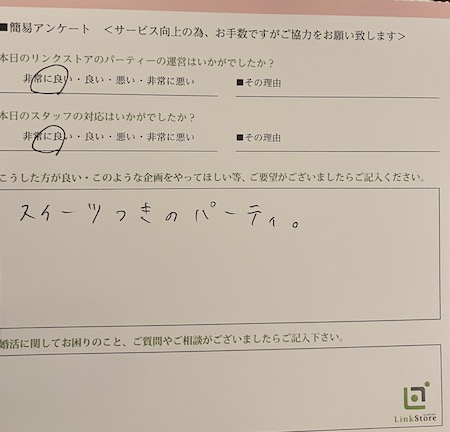 ■簡易アンケート ＜サービス向上の為、お手数ですがご協力をお願い致します＞
本日のリンクストアのパーティーの運営はいかがでしたか？
非常に良い・良い・悪い・非常に悪い ■その理由
本日のスタッフの対応はいかがでしたか？
非常に良い・良い・悪い・非常に悪い ■その理由
こうした方が良い・このような企画をやってほしい等、ご要望がございましたらご記入ください。
スイーツつきのパーティ。
婚活に関してお困りのこと、ご質問やご相談がございましたらご記入下さい。
LinkStore